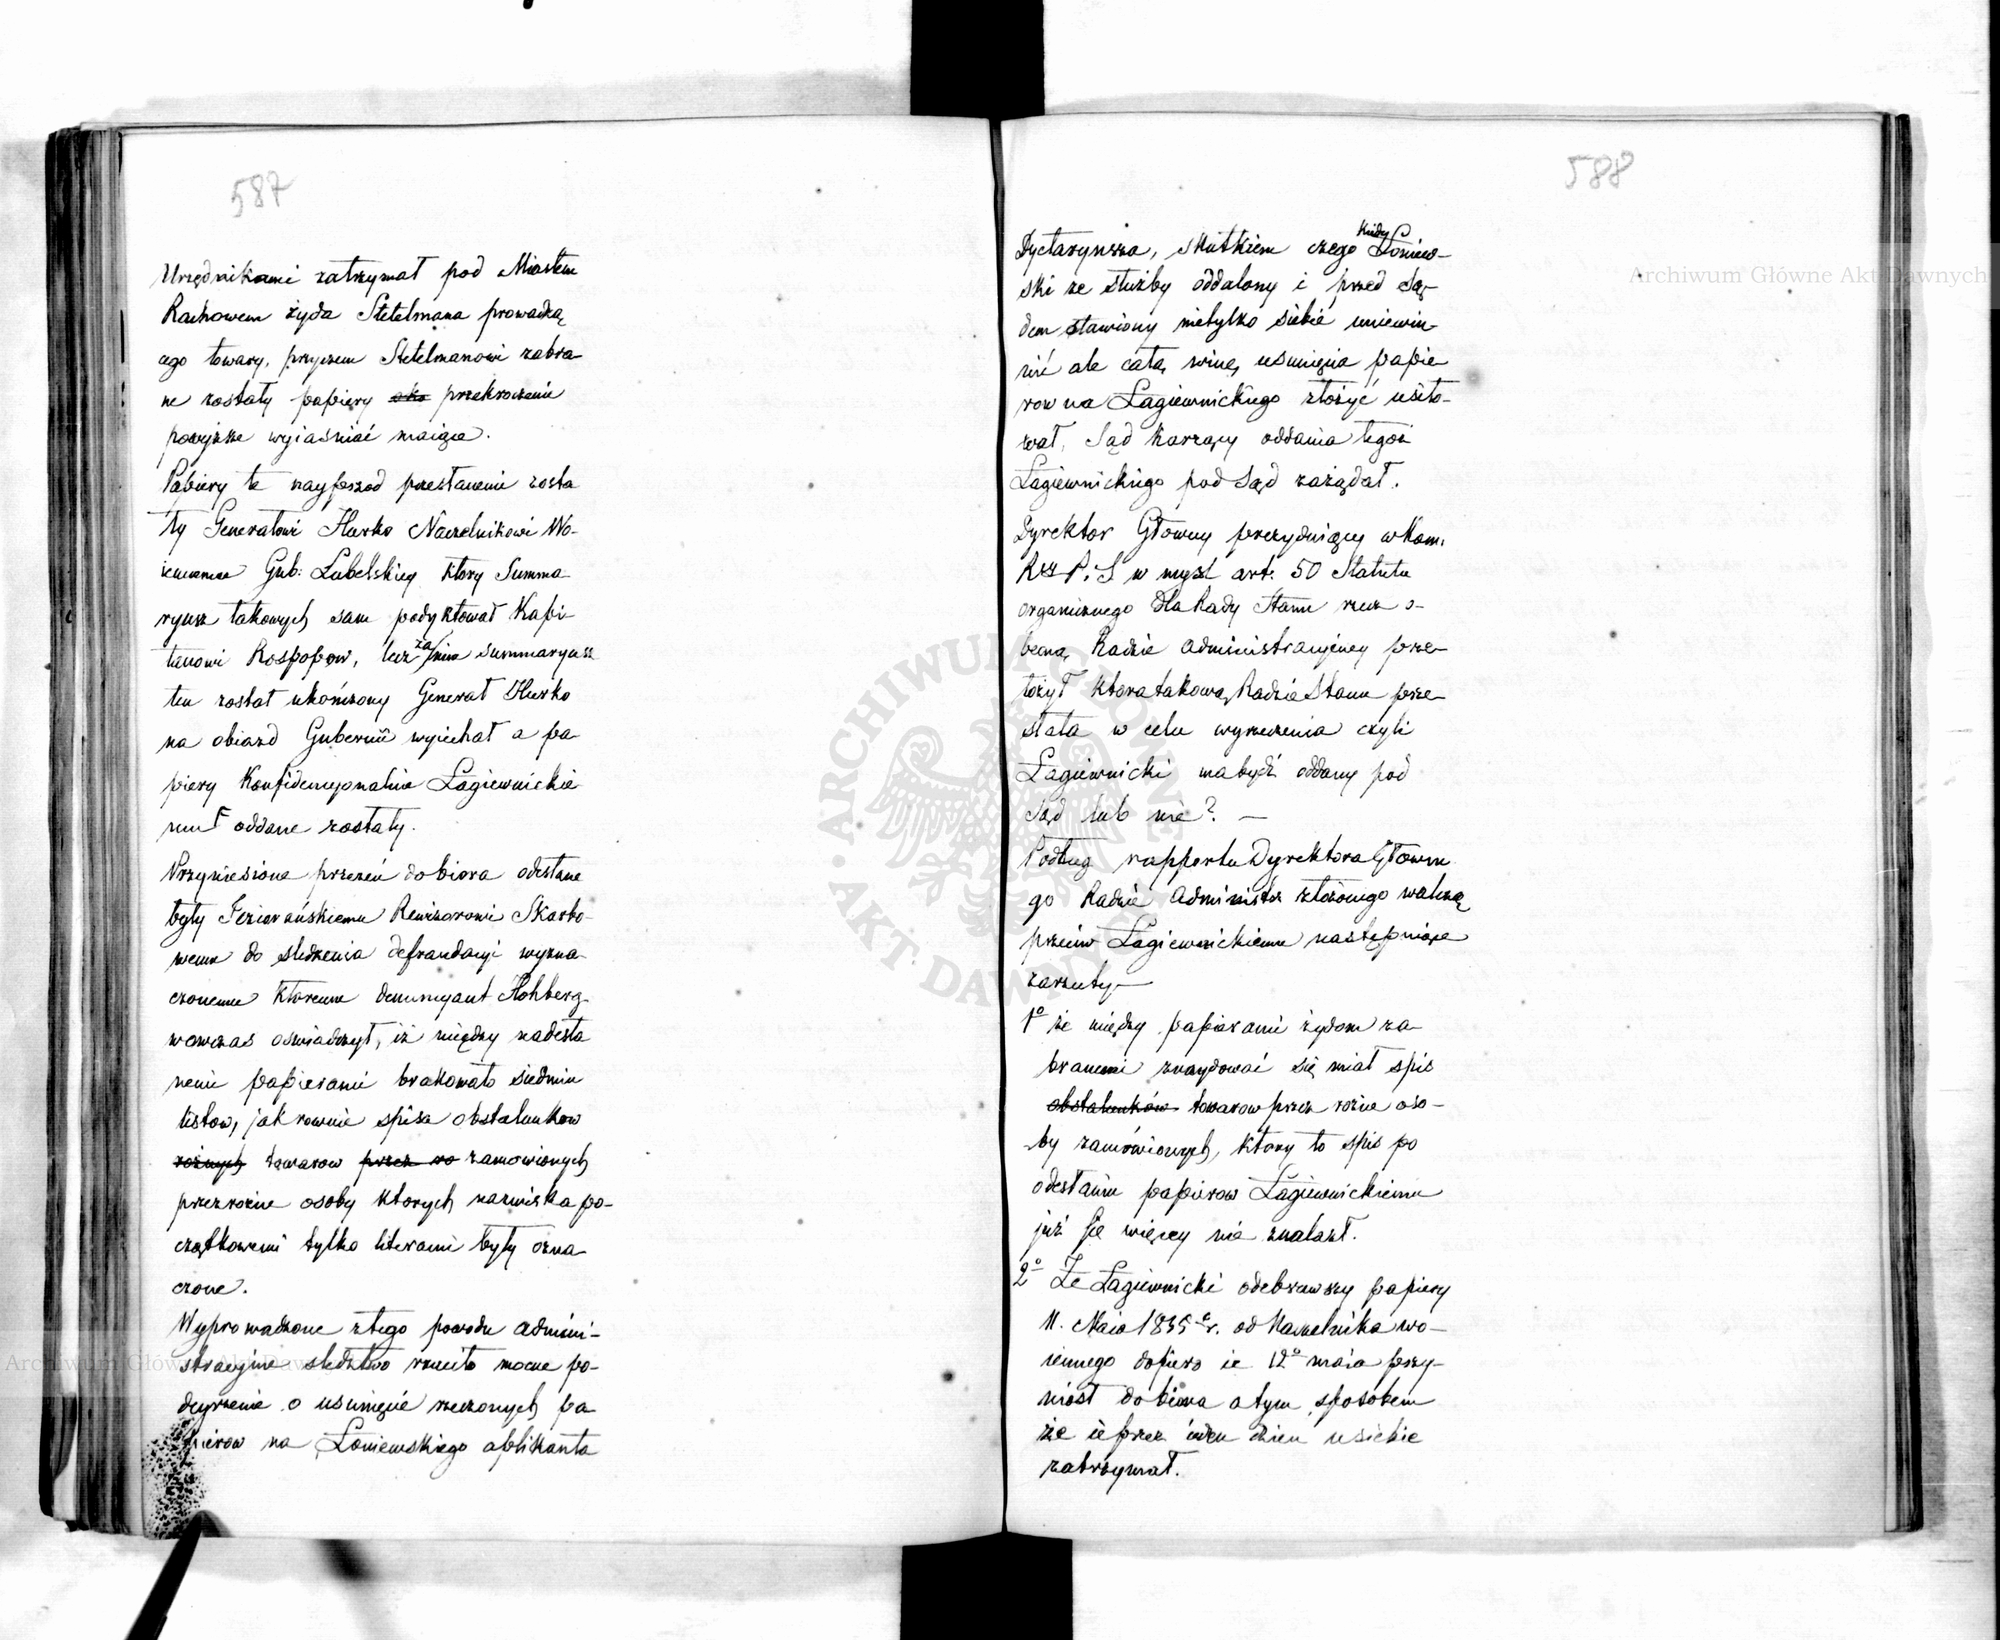 587
Urzędnikami zatrzymał pod Miastem
Rachowem żyda Stetelmana prowadzą
cego towary, przyczem Stetelmanowi zabra
ne zostały papiery oko przekroczenie
powyższe wyiaśniać maiące.
Papiery te nayprzod przesłanemi zosta
ły Generałowi Hurko Naczelnikowi Wo-
iennemu Gub: Lubelskiey który Summa
ryusz takowych sam podyktował Kapi-
tanowi Rospopow, lecz za/nim summaryusz
ten został ukończony Generał Hurko
na obiazd Gubernii wyiechał a pa
piery Konfidencyonalnie Łagiewnickie
mu oddane zostały.
Przyniesione przezeń do biora odesłane
były Jezierańskiemu Rewizorowi Skarbo-
wemu do śledzenia defraudacyi wyzna
czonemu któremu denuncyant Hohberg
wowczas oswiadczył, iż między nadesła
nemi papierami brakowało siedmiu
listow, jak rownie spisu obstalunkow
rożnych towarow przez ro zamowionych
przez rożne osoby ktorych nazwiska po-
czątkowemi tylko literami były ozna
czone.
Wyprowadzone ztego powodu admini-
stracyjne śledztwo rzuciło mocne po-
deyrzenie o usunięcie rzeczonych pa
pierow na Łoniewskiego aplikanta
588
Dyetaryusza, skutkiem czego kiedy Łoniew-
ski ze służby oddalony i przed Są-
dem stawiony nietylko siebie uniewin-
nić ale całą winę usunięcia papie
row na Łagiewnickiego złożyć usiło-
wał, Sąd karzący oddania tegoż
Łagiewnickiego pod Sąd zażądał.
Dyrektor Główny prezyduiący w Kom:
Rzz P. i S w myśl art: 50 Statutu
organicznego dla Rady Stanu rzecz o-
becną Radzie administracyiney prze-
łożył która takową Radzie Stanu prze-
słała w celu wyrzeczenia czyli
Łagiewnicki ma bydź oddany pod
Sąd lub nie? —
Podług rapportu Dyrektora Główne
go Radzie Administr złożonego walczą
przeciw Łagiewnickiemu następuiące
zarzuty—
1º że między papierami żydom za
branemi znaydować się miał spis
obstalunków towarow przez rożne oso-
by zamówionych, ktory to spis po
odesłaniu papierow Łagiewnickiemu
już się więcey nie znalazł.
2º Że Łagiewnicki odebrawszy papiery
11. Maia 1835 r. od Naczelnika wo-
iennego dopiero ie 12º maia przy-
niosł do biura a tym sposobem
że ie przez ieden dzien u siebie
zatrzymał.
Archiwum Główne Akt Dawnych
Archiwum Główne Akt Dawnych
ARCHIWUM GŁÓWNE AKT DAWNYCH